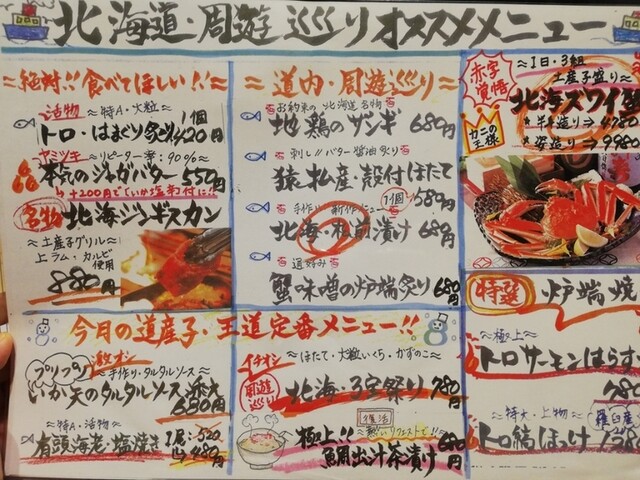 北海道・周遊巡りオススメメニュー
≈絶対!!食べてほしい!!≈
活物 ≈特A・大粒≈
トロ・はまぐり炙り 1個 420円
ヤミツキ ≈リピーター率:90%≈
本気のジャガバター 550円
+200円でいか塩辛付に!!
名物 北海ジンギスカン
≈土産子グリル≈
上ラム・カルビ使用
880円
≈道内・周遊巡り≈
お約束の北海道名物
地鶏のザンギ 680円
刺し!!バター醤油炙り
猿払産・殻付ほたて 1個 580円
手作り・新作メニュー
北海・松前漬け 680円
通好み
蟹味噌の炉端炙り 680円
赤字覚悟
≈1日・3組
土産子盛り≈
北海ズワイ
カニの王様
*半身造り⇒4780
*姿造り⇒9980
特選 炉端焼
≈極上≈
トロサーモンはらす
≈特大・上物≈ 羅臼産
トロ縞ほっけ
≈今日の道産子・王道定番メニュー!!
プリップリ 激オシ
≈手作り・タルタルソース≈
いか天のタルタルソース添え
680円
≈特A・活物≈
有頭海老・塩焼き 1尾:520 480円
イチオシ
周遊巡り
≈ほたて・大粒いくら・かずのこ≈
北海・子宝祭り 780円
復活
≈熱いリクエストで!!≈
極上!!鯛出汁茶漬け 680円